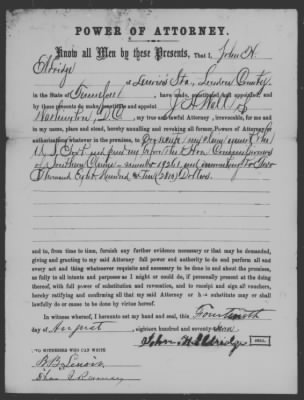 POWER OF ATTORNEY.
Know all Men by these Presents, That I, John H.
Eldridge
of Lenoir's Sta, Loudon County,
in the State of Tennessee, have made, constituted and appointed, and
by these presents do make, constitute and appoint J H Wall of
Washington, D.C. my true and lawful Attorney, irrevocable, for me and
in my name, place and stead, hereby annulling and revoking all former Powers of Attorney or
authorizations whatever in the premises, to prosecute my claim against the
U.S. Govt. now pending before the Hon Commissioners
of Southern Claims - number and amounting to Two
Thousand Eight Hundred & Ten (2810) Dollars.
and to, from time to time, furnish any further evidence necessary or that may be demanded,
giving and granting to my said Attorney full power and authority to do and perform all and
every act and thing whatsoever requisite and necessary to be done in and about the premises,
as fully to all intents and purposes as I might or could do, if personally present at the doing
thereof, with full power of substitution and revocation, and to receipt and sign all vouchers,
hereby ratifying and confirming all that my said Attorney or his substitute may or shall
lawfully do or cause to be done by virtue hereof.
In witness whereof, I hereunto set my hand and seal, this Fourteenth
day of August, eighteen hundred and seventy
John H Eldridge SEAL.
TWO WITNESSES WHO CAN WRITE
B. B. Lenoir